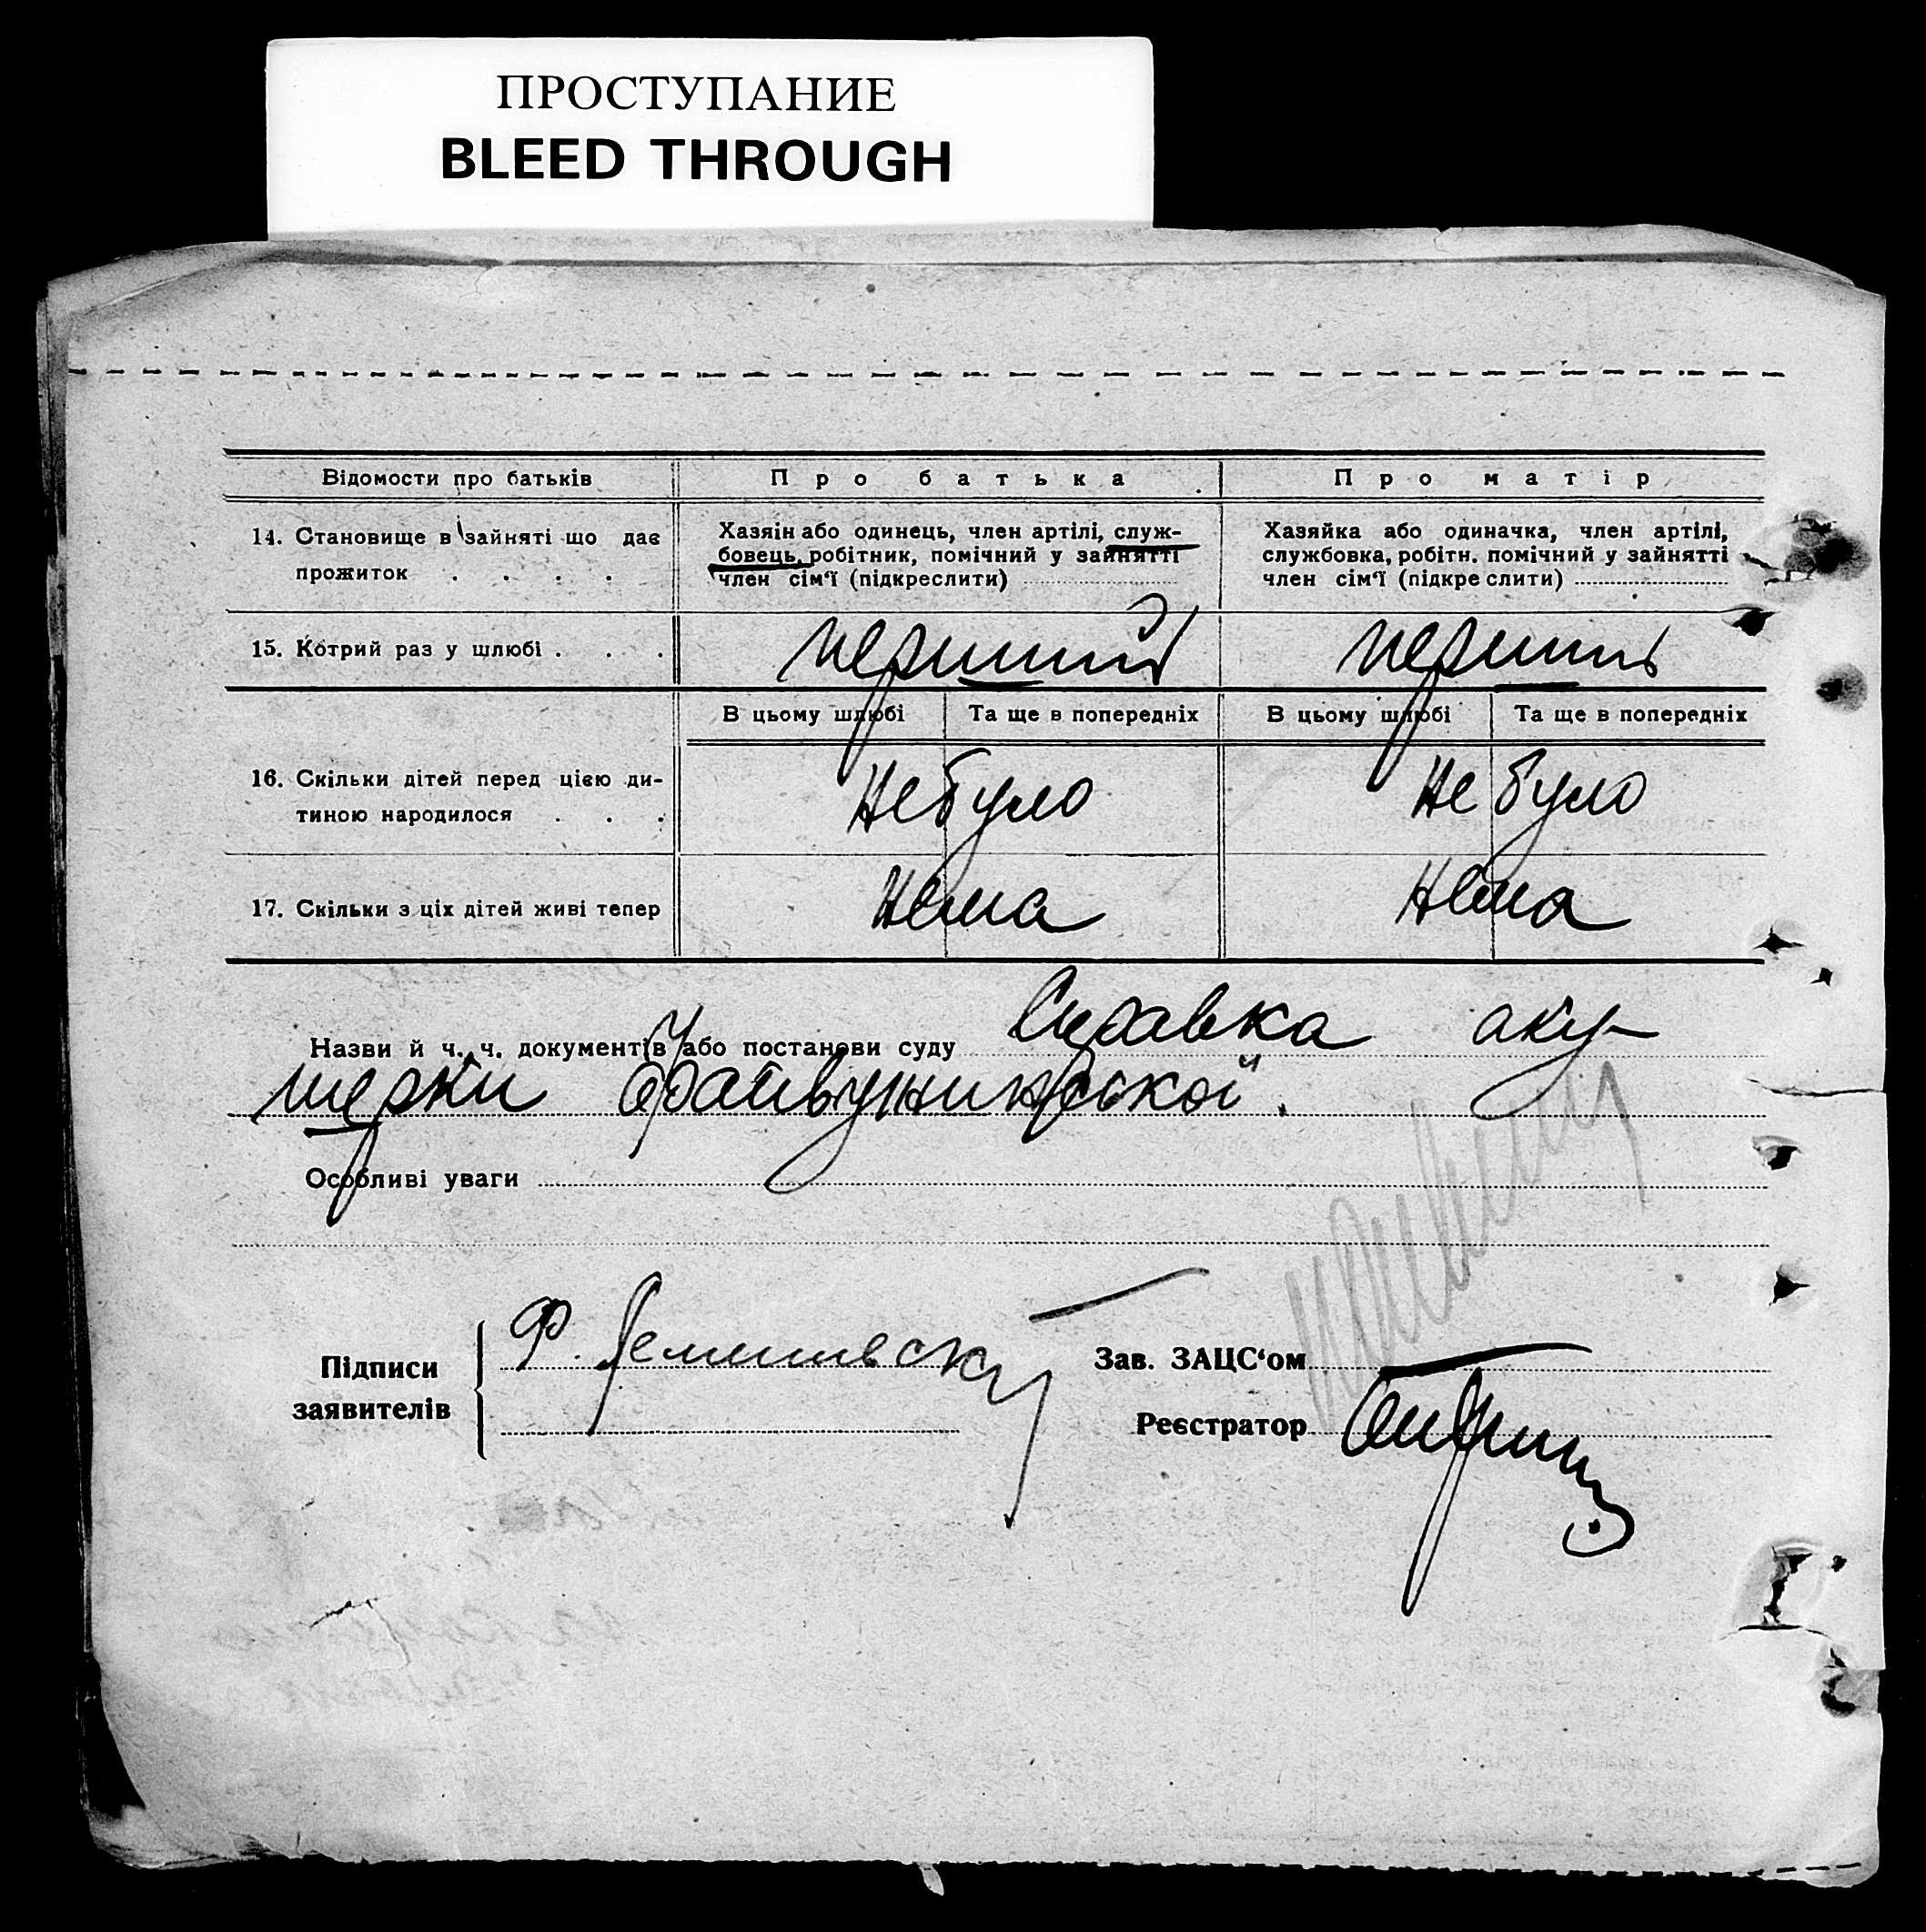 ПРОСТУПАНИЕ
BLEED THROUGH
Відомости про батьків
Про батька
Про матір
14. Становище в зайняті що дає
прожиток . . . .
Хазяїн або одинець, член артілі, служ-
бовець, робітник, помічний у зайнятті
член сім'ї (підкреслити)
Хазяйка або одиначка, член артілі,
службовка, робітн. помічний у зайнятті
член сім'ї (підкреслити)
15. Котрий раз у шлюбі . . .
перший
перший
В цьому шлюбі
Та ще в попередніх
В цьому шлюбі
Та ще в попередніх
16. Скільки дітей перед цією ди-
тиною народилося . . .
Не було
Не було
17. Скільки з ціх дітей живі тепер
Нема
Нема
Назви й ч. ч. документів або постанови суду Справка аку-
шерки
Особливі уваги
Підписи
заявителів
Ф.
Зав. ЗАЦС'ом
Реєстратор